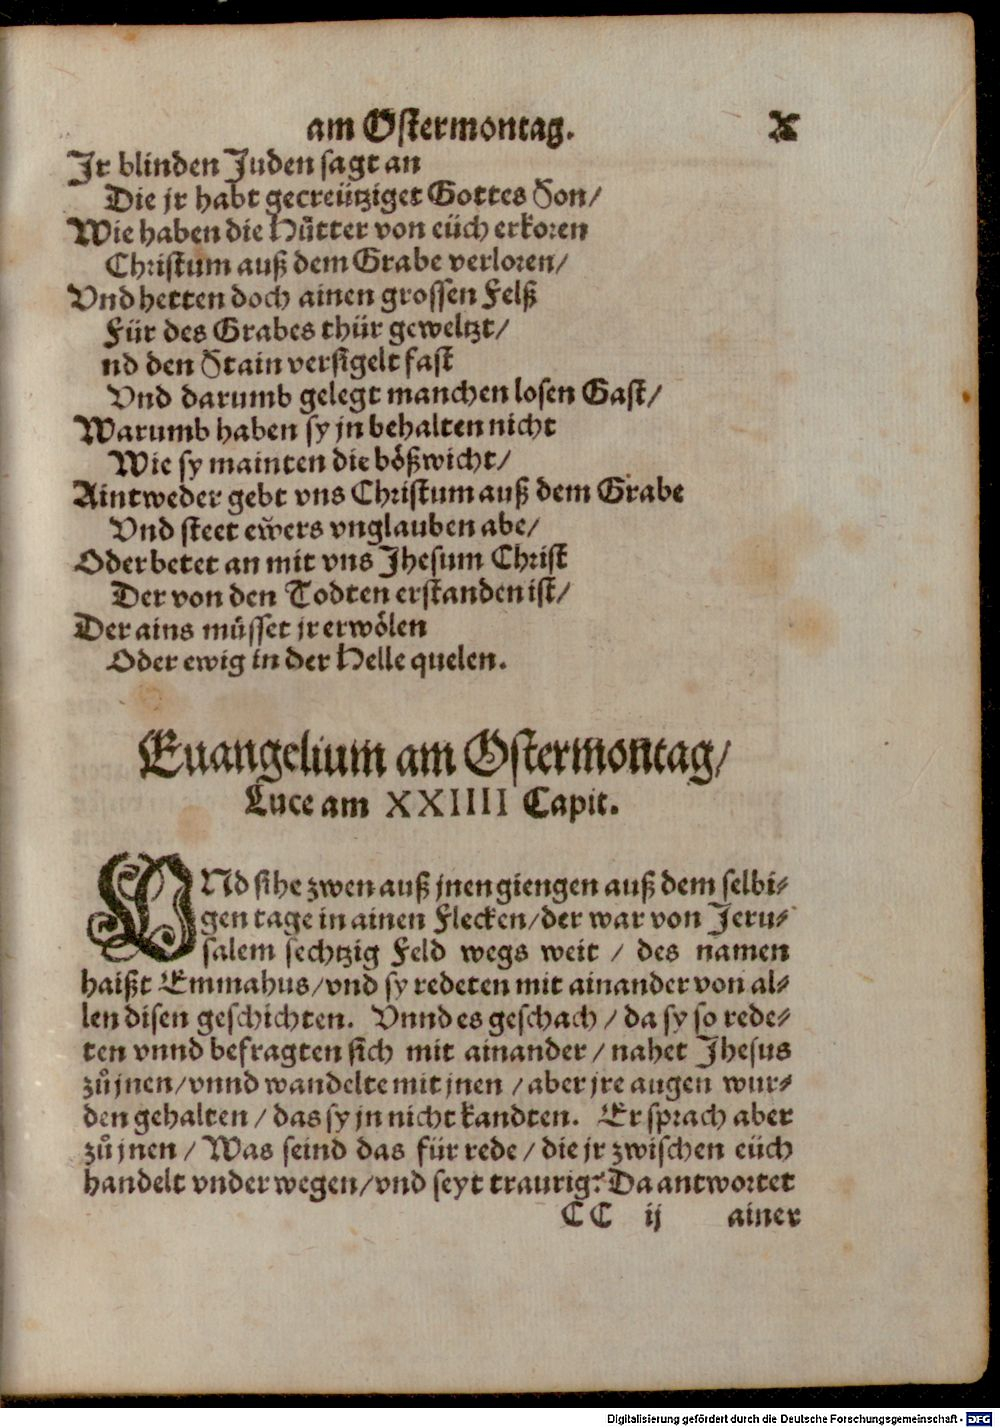 am Ostermontag. X
Jr blinden Juden sagt an
Die jr habt gecreütziget Gottes Son/
Wie haben die Hütter von eüch erkoren
Christum auß dem Grabe verloren/
Vnd hetten doch ainen grossen Felß
Für des Grabes thür geweltzt/
nd den Stain versigelt fast
Vnd darumb gelegt manchen losen Gast/
Warumb haben sy jn behalten nicht
Wie sy mainten die bößwicht/
Aintweder gebt vns Christum auß dem Grabe
Vnd steet ewers vnglauben abe/
Oder betet an mit vns Jhesum Christ
Der von den Todten erstanden ist/
Der ains müsset jr erwölen
Oder ewig in der Helle quelen.
Euangelium am Ostermontag/
Luce am XXIIII Capit.
VNd sihe zwen auß jnen giengen auß dem selbi-
gen tage in ainen Flecken/der war von Jeru-
salem sechtzig Feld wegs weit / des namen
haißt Emmahus/vnd sy redeten mit ainander von al-
len disen geschichten. Vnnd es geschach / da sy so rede-
ten vnnd befragten sich mit ainander / nahet Jhesus
zůjnen/vnnd wandelte mit jnen / aber jre augen wur-
den gehalten / das sy jn nicht kandten. Er sprach aber
zůjnen / Was seind das für rede / die jr zwischen eüch
handelt vnder wegen/vnd seyt traurig? Da antwortet
CC ij ainer
Digitalisierung gefördert durch die Deutsche Forschungsgemeinschaft - DFG